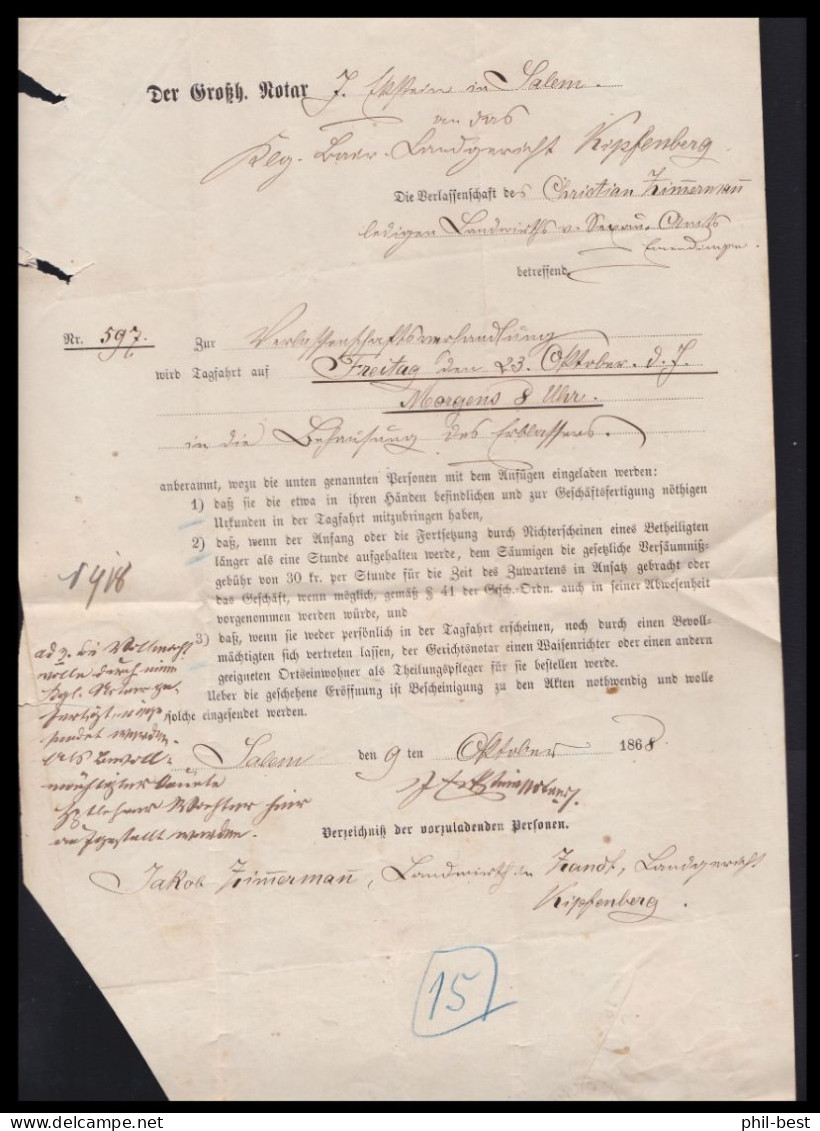 Der Großh. Notar J. Ekstein in Salem.
an das
Kög. Baer. Landgericht Kipfenberg.
Die Verlassenschaft des Christian Zimmermann
ledigen Landwirths v. Sexau, Amts
Emendingen.
betreffend
Nr. 597. Zur Verlassenschaftsverhandlung
wird Tagfahrt auf Freitag den 23. Oktober d. J.
Morgens 8 Uhr.
in die Behausung des Erblassers.
anberaumt, wozu die unten genannten Personen mit dem Anfügen eingeladen werden:
1) daß sie die etwa in ihren Händen befindlichen und zur Geschäftsfertigung nöthigen
Urkunden in der Tagfahrt mitzubringen haben,
2) daß, wenn der Anfang oder die Fortsetzung durch Nichterscheinen eines Betheiligten
länger als eine Stunde aufgehalten werde, dem Säumigen die gesetzliche Versäumniß-
gebühr von 30 kr. per Stunde für die Zeit des Zuwartens in Ansatz gebracht oder
das Geschäft, wenn möglich, gemäß § 41 der Gesch.-Ordn. auch in seiner Abwesenheit
vorgenommen werden würde, und
3) daß, wenn sie weder persönlich in der Tagfahrt erscheinen, noch durch einen Bevoll-
mächtigten sich vertreten lassen, der Gerichtsnotar einen Waisenrichter oder einen andern
geeigneten Ortseinwohner als Theilungspfleger für sie bestellen werde.
Ueber die geschehene Eröffnung ist Bescheinigung zu den Akten notwendig und wolle
solche eingesendet werden.
ad 3. die Vollmacht
wolle durch einen
kgl. Notar ge-
fertigt, einge-
sendet werden.
Als Bevoll-
mächtigter könnte
Hptlehrer Waechter hier
aufgestellt werden.
Salem den 9 ten Oktober 1868
J Ekstein Notar.
Verzeichniß der vorzuladenden Personen.
Jakob Zimmermann, Landwirth in Zandt, Landgericht
Kipfenberg.
15
phil-best